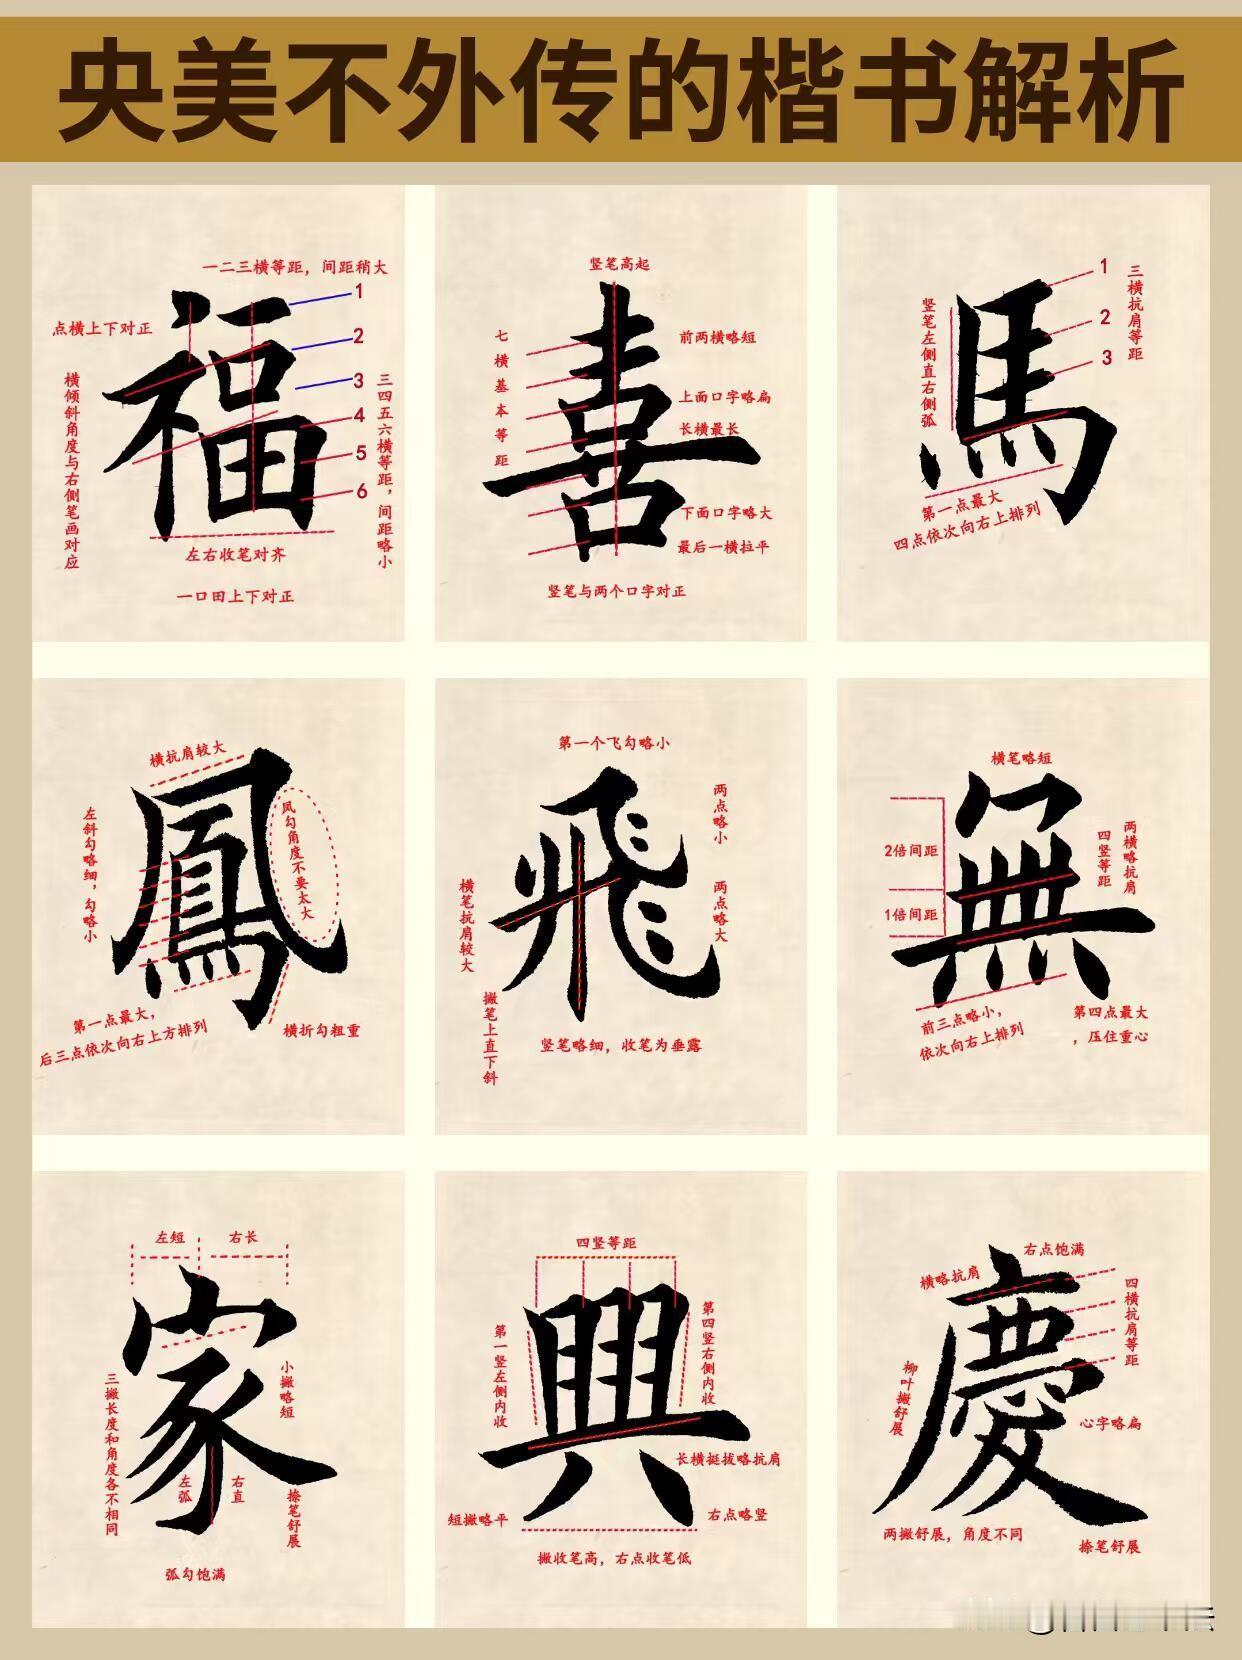 央美不外传的楷书解析
一二三横等距，间距稍大
点横上下对正
横倾斜角度与右侧笔画对应
福
1
2
3
4
5
6
三四五六横等距，间距略小
左右收笔对齐
一口田上下对正
竖笔高起
七横基本等距
喜
前两横略短
上面口字略扁
长横最长
下面口字略大
最后一横拉平
竖笔与两个口字对正
竖笔左侧直右侧弧
馬
1
2
3
三横抗肩等距
第一点最大
四点依次向右上排列
横抗肩较大
左斜勾略细，勾略小
鳳
凤勾角度不要太大
第一点最大，
后三点依次向右上方排列
横折勾粗重
第一个飞勾略小
飛
两点略小
两点略大
横笔抗肩较大
撇笔上直下斜
竖笔略细，收笔为垂露
横笔略短
2倍间距
1倍间距
無
四竖等距
两横略抗肩
前三点略小，
依次向右上排列
第四点最大
，压住重心
左短
右长
家
三撇长度和角度各不相同
小撇略短
左弧
右直
捺笔舒展
弧勾饱满
四竖等距
第一竖左侧内收
興
第四竖右侧内收
长横挺拔略抗肩
短撇略平
右点略竖
撇收笔高，右点收笔低
右点饱满
横略抗肩
慶
四横抗肩等距
柳叶撇舒展
心字略扁
两撇舒展，角度不同
捺笔舒展